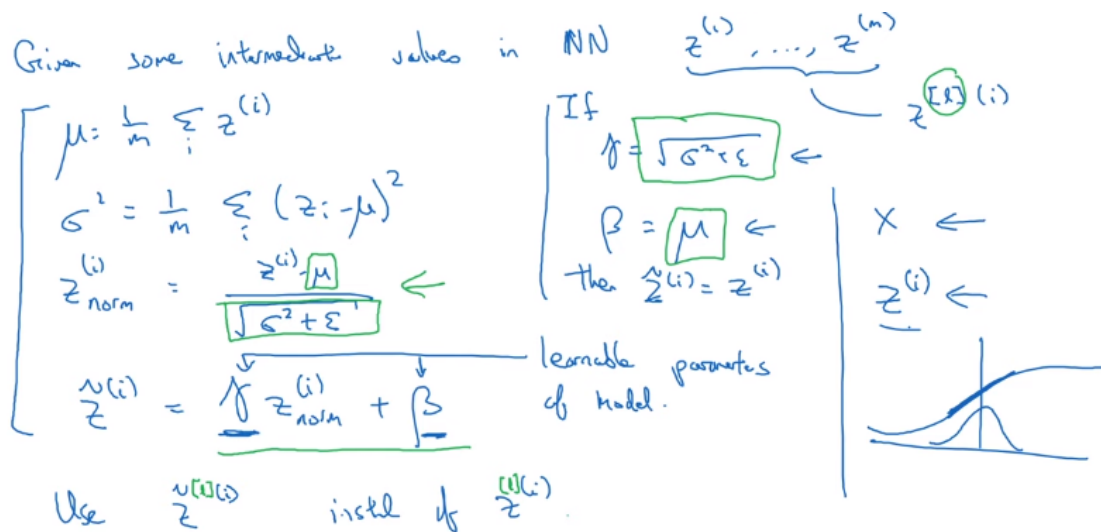 Given some intermediate values in NN z^(i), ..., z^(m)
z^[l](i)
μ = 1/m Σ_i z^(i)
σ² = 1/m Σ_i (z_i - μ)²
z^(i)_norm = (z^(i) - μ) / √(σ² + ε) ←
z̃^(i) = γ z^(i)_norm + β
learnable parameters
of model.
If
γ = √(σ² + ε) ←
β = μ ←
then z̃^(i) = z^(i)
X ←
z^(i) ←
Use z̃^[l](i) instead of z^[l](i).